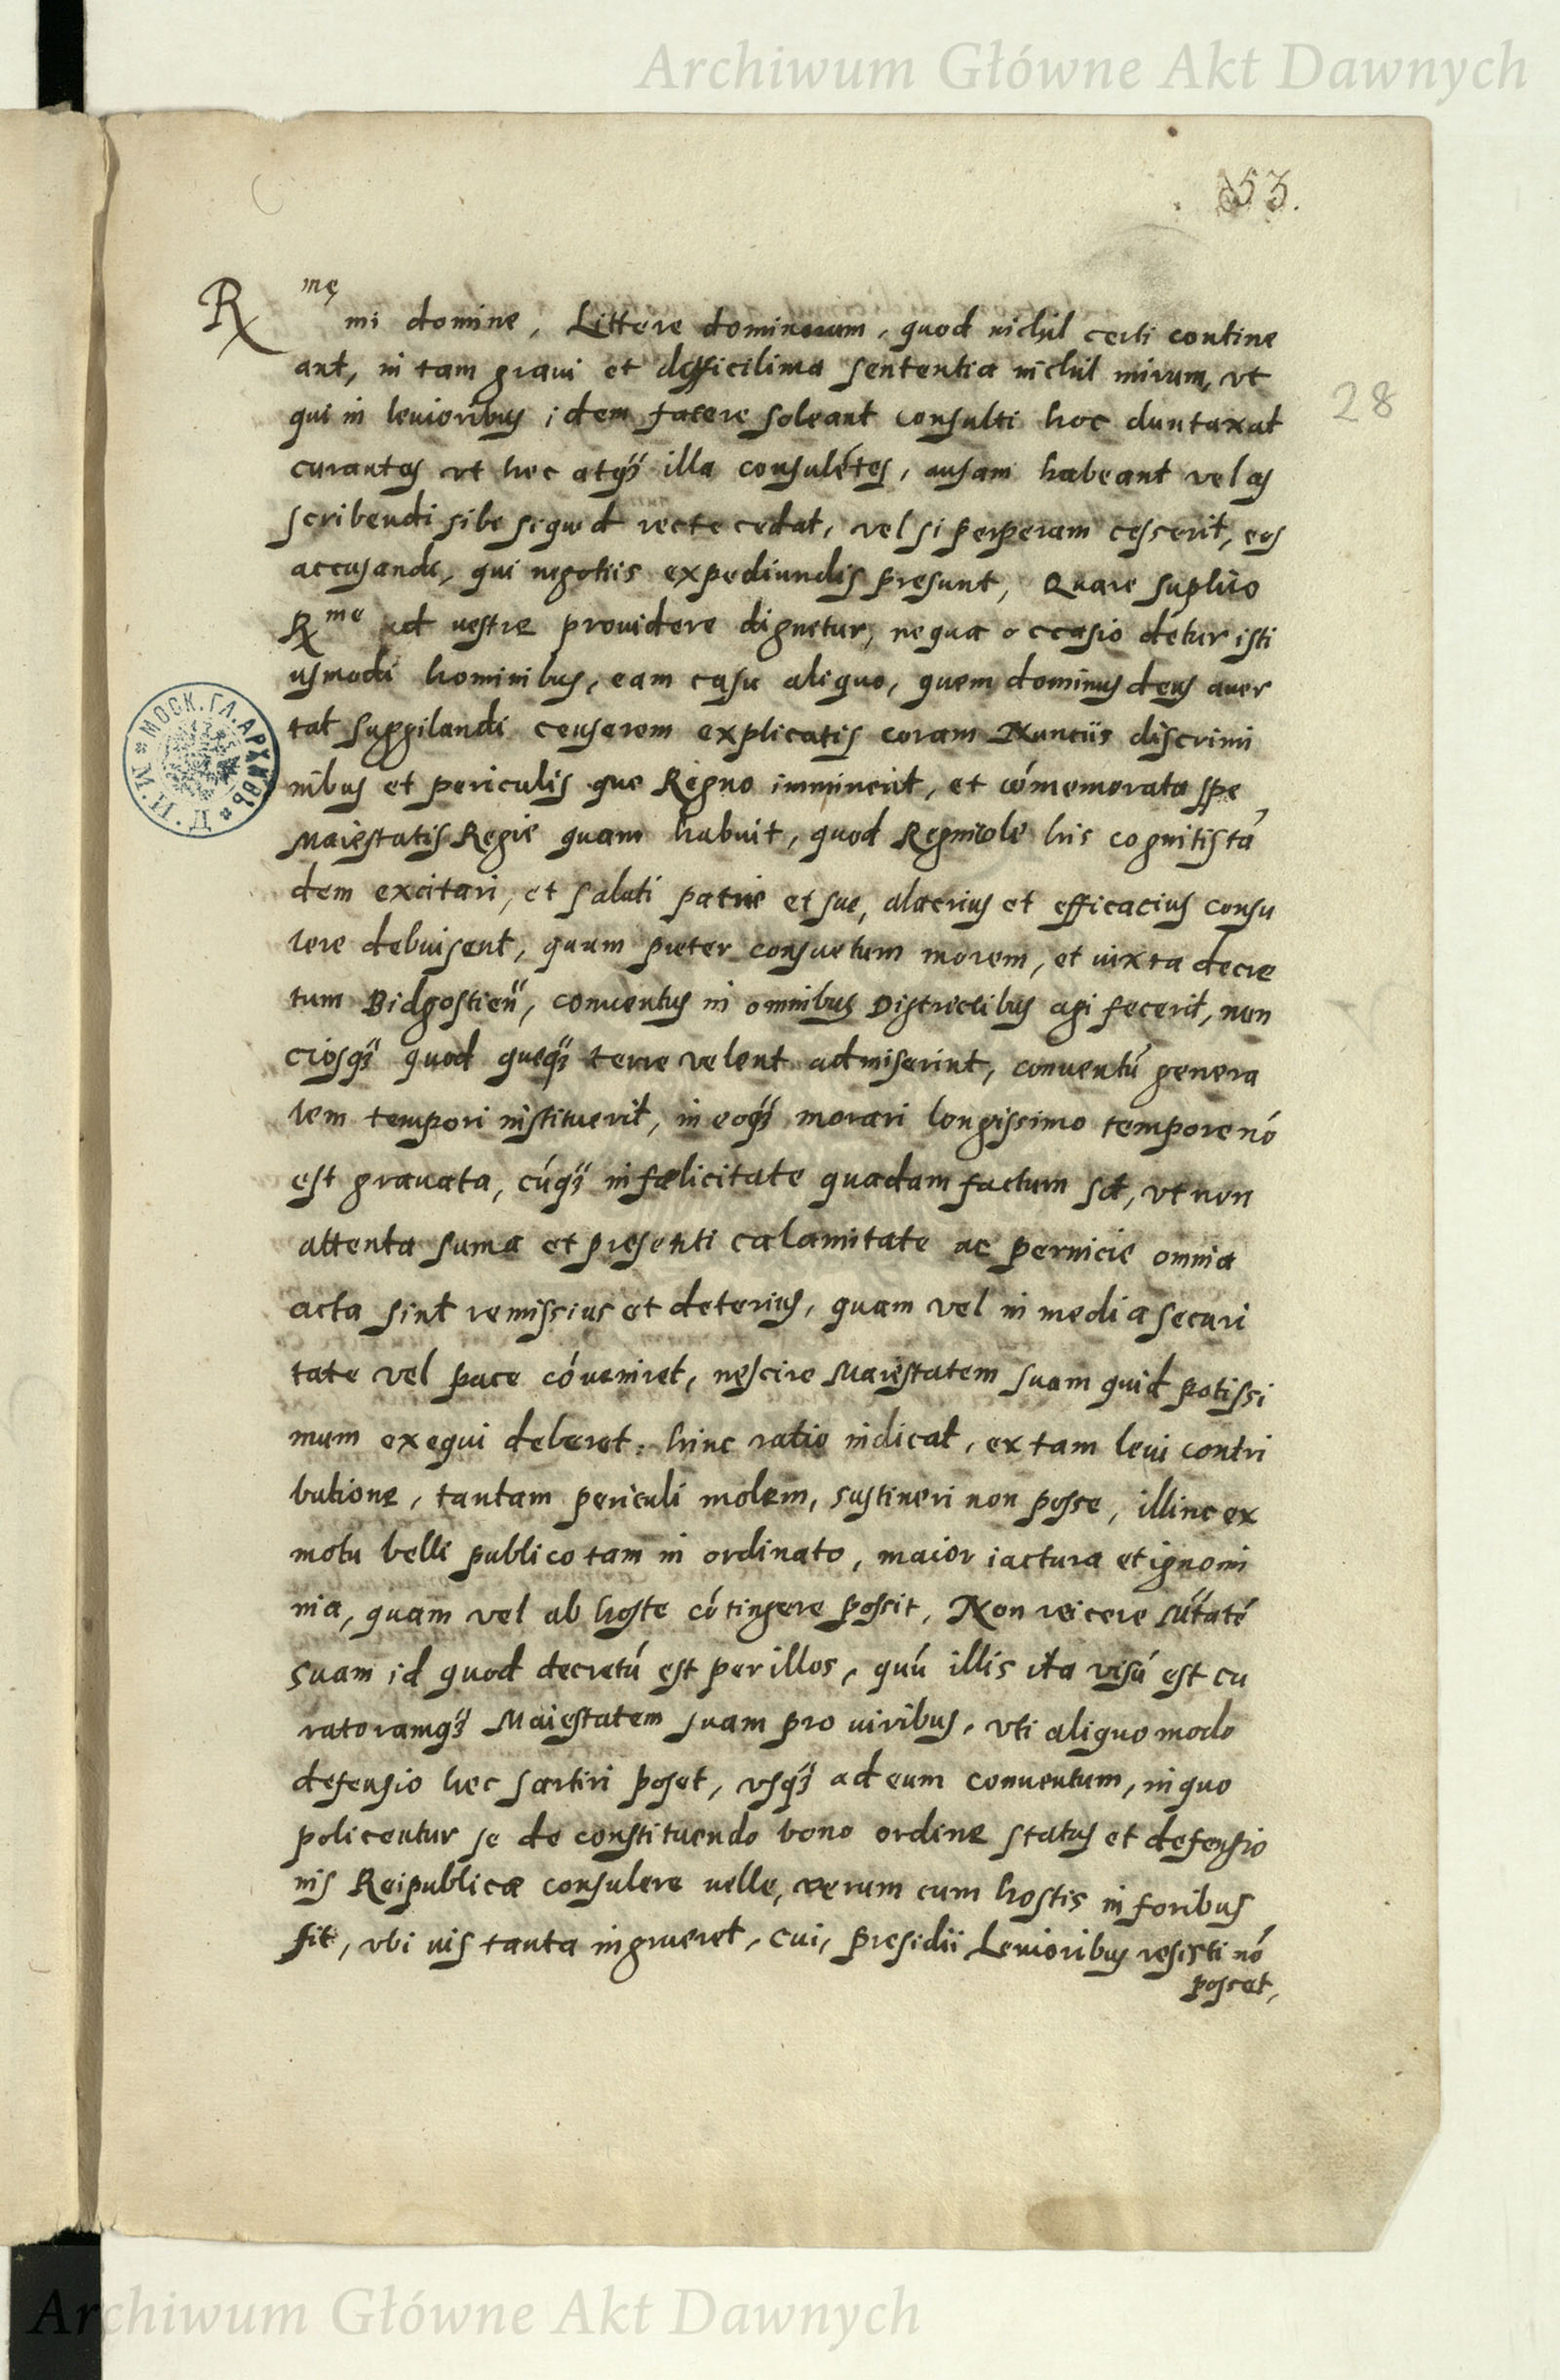 Archiwum Główne Akt Dawnych
53.
28
R mę
mi domine, Littere dominorum, quod nichil certi contine
ant, in tam gravi et difficilima sententia nichil mirum, vt
qui in levioribus idem facere soleant consulti hoc duntaxat
curantes vt hec atqȝ illa consulétes, ansam habeant vel as
scribendi sibi siquid recte cedat, vel si perperam cesserit, eos
accusandi, qui negotiis expediundis presunt, Quare suplico
R me d vestre providere dignetur, ne qua occasio detur isti
usmodi hominibus, eam casu aliquo, quem dominus deus aver
tat suggilandi censerem explicatis coram Nunciis discrimi
nibus et periculis que Regno imminent, et cómemorata spe
Maiestatis Regie quam habuit, quod Regnicole his cognitis tá
dem excitari, et saluti patrie et sue, alacrius et efficacius consu
lere debuisent, quum preter consuetum morem, et iuxta decre
tum Bidgostien, conventus in omnibus Districtibus agi fecerit, nun
ciosqȝ quod queqȝ terre velent admiserint, conventú genera
lem tempori instituerit, in eoqȝ morari longissimo tempore nó
est gravata, cúqȝ infœlicitate quadam factum sit, vt non
attenta suma et presenti calamitate ac pernicie omnia
acta sint remissius et deterius, quam vel in media securi
tate vel pace cóveniret, nescire Maiestatem suam quid potissi
mum exequi deberet. hinc ratio indicat, ex tam levi contri
butione, tantam periculi molem, sustineri non posse, illinc ex
motu belli publico tam in ordinato, maior iactura et ignomi
nia, quam vel ab hoste cótingere possit, Non reicere
suam id quod decretú est per illos, quú illis ita visú est cu
raturamqȝ Maiestatem suam pro viribus, vti aliquo modo
defensio hec sartiri poset, vsqȝ ad eum conventum, in quo
policentur se de constituendo bono ordine status et defensio
nis Reipublicæ consulere velle, verum cum hostis in foribus
sit, vbi vis tanta ingrueret, cui, presidii Levioribus resisti nó
posset,
МОСК. ГЛ. АРХИВЪ * М. И. Д. *
Archiwum Główne Akt Dawnych